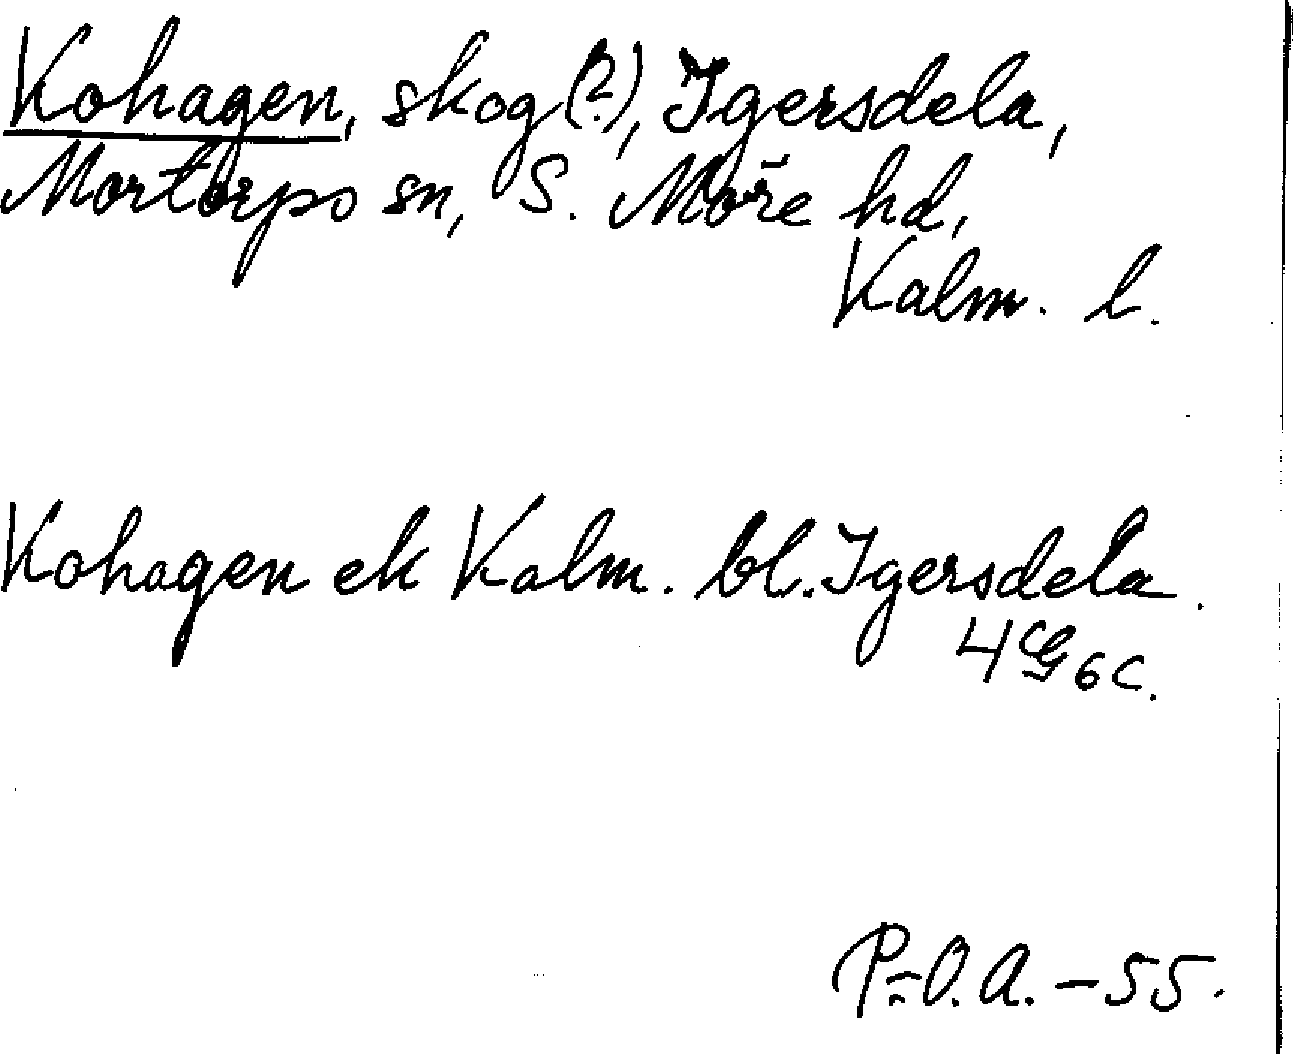 Kohagen, skog (?), Igersdela,
Mortorps sn, S. Möre hd,
Kalm. l.
Kohagen ek Kalm. bl. Igersdela.
4G6c.
P.-O. A. – 55.